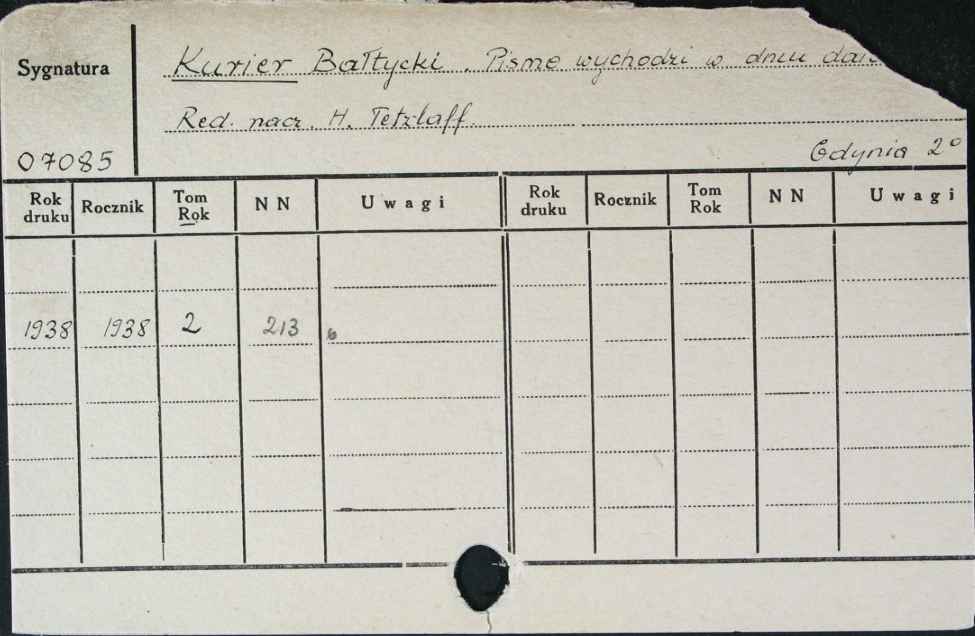 Sygnatura
Kurier Bałtycki. Pismo wychodzi w dniu
Red. nacz. H. Tetzlaff.
07085
Gdynia 2°
Rok druku Rocznik Tom Rok NN Uwagi Rok druku Rocznik Tom Rok NN Uwagi
1938 1938 2 213